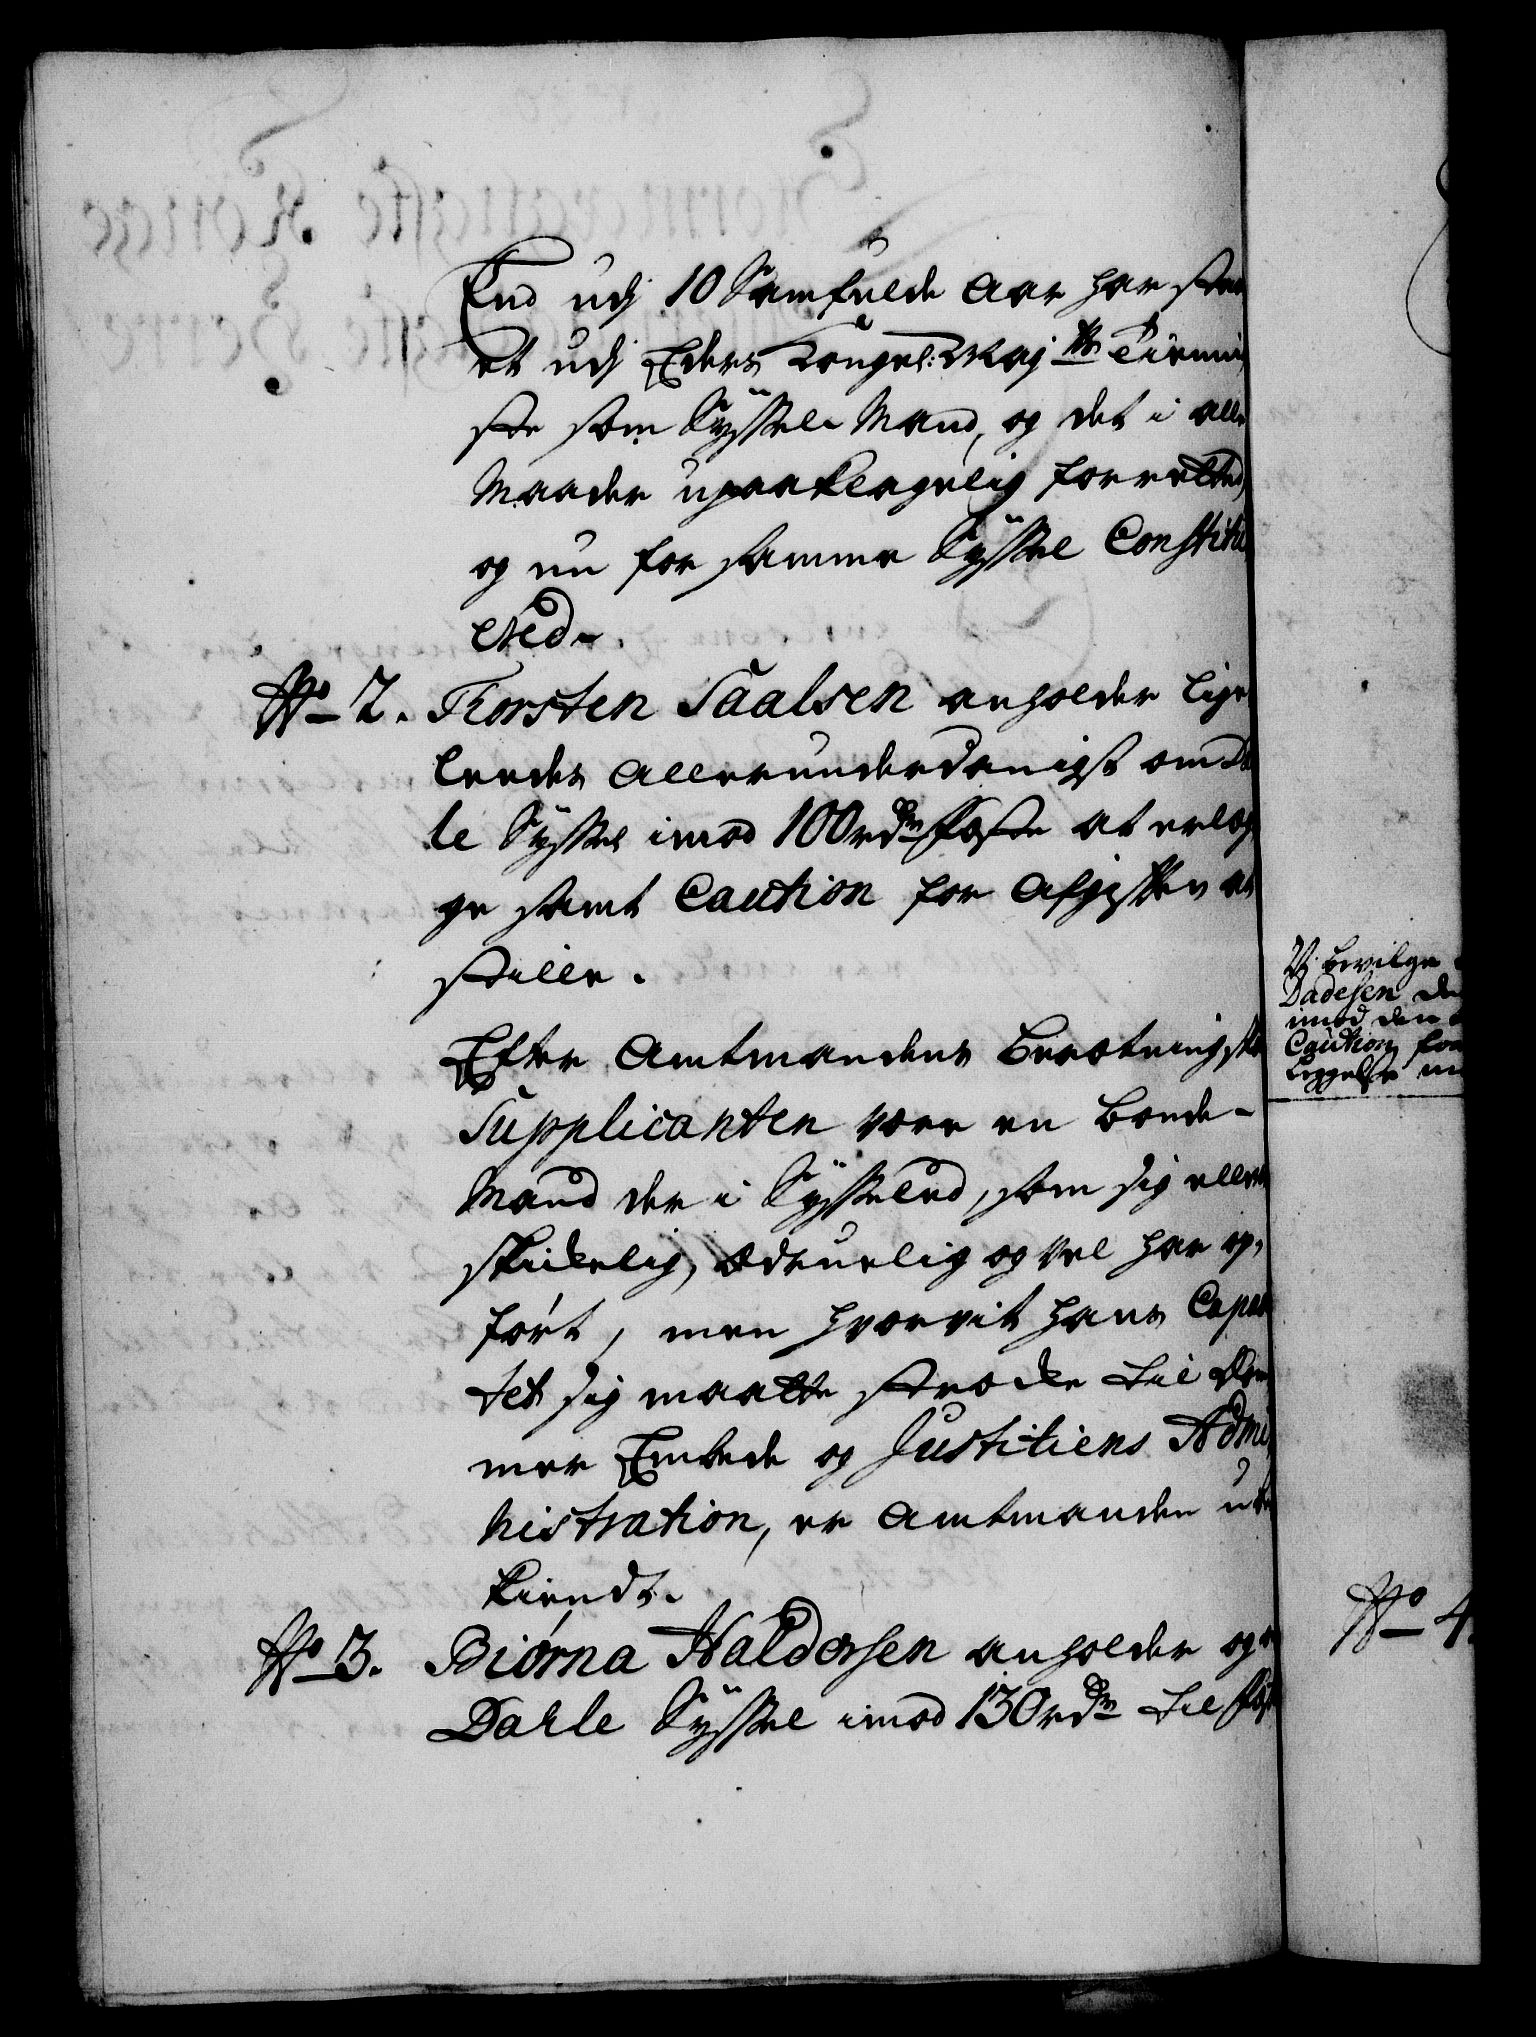 End udj 10 Samfulde Aar har staa
et udj Eders Kongel: Maj ts Tienni
ste som Syssel Mand, og det i alle
Maader upaaklagelig forretted,
og nu for samme Syssel Constitu
ered.
No 2. Torsten Saalsen anholder lige
leedes allerunderdanigst om Da
le Syssel imod 100 rdr fæste at erlæg
ge samt Caution for Afgiften at
stille.
Efter Amtmandens beretning skal
Supplicanten være en bonde-
Mand der i Sysseled, som sig ellers
skikkelig, ædruelig og vel har op,
ført, men hvorvit hans Capaci
tet sig maatte strække til Dom
mer Embede og Justitiens Admi
nistration, er Amtmanden ube
kiendt.
No 3. Biørna Haldersen anholder og om
Dahle Syssel imod 130 rdr til fæst
Vj bevilge
Dadesen de
imod den
Caution for
leggelse
No 4.